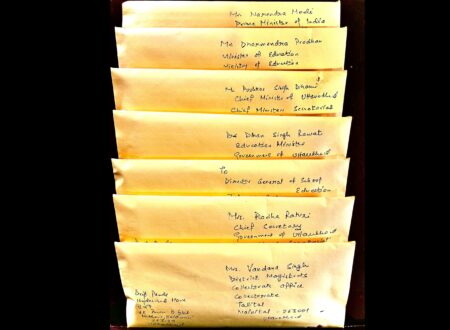 Mr. Narendra Modi
Prime Minister of India
Mr. Dharmendra Pradhan
Minister of Education
Ministry of Education
Mr. Pushkar Singh Dhami
Chief Minister of Uttarakhand
Chief Minister Secretariat
Dhan Singh Rawat
Education Minister
Government of Uttarakhand
To
Director General of School
Education
Mrs. Radha Raturi
Chief Secretary
Government of Uttarakhand
Mrs. Vandana Singh
District Magistrate
Collectorate Office
Collectorate
Tallital
Nainital - 263001